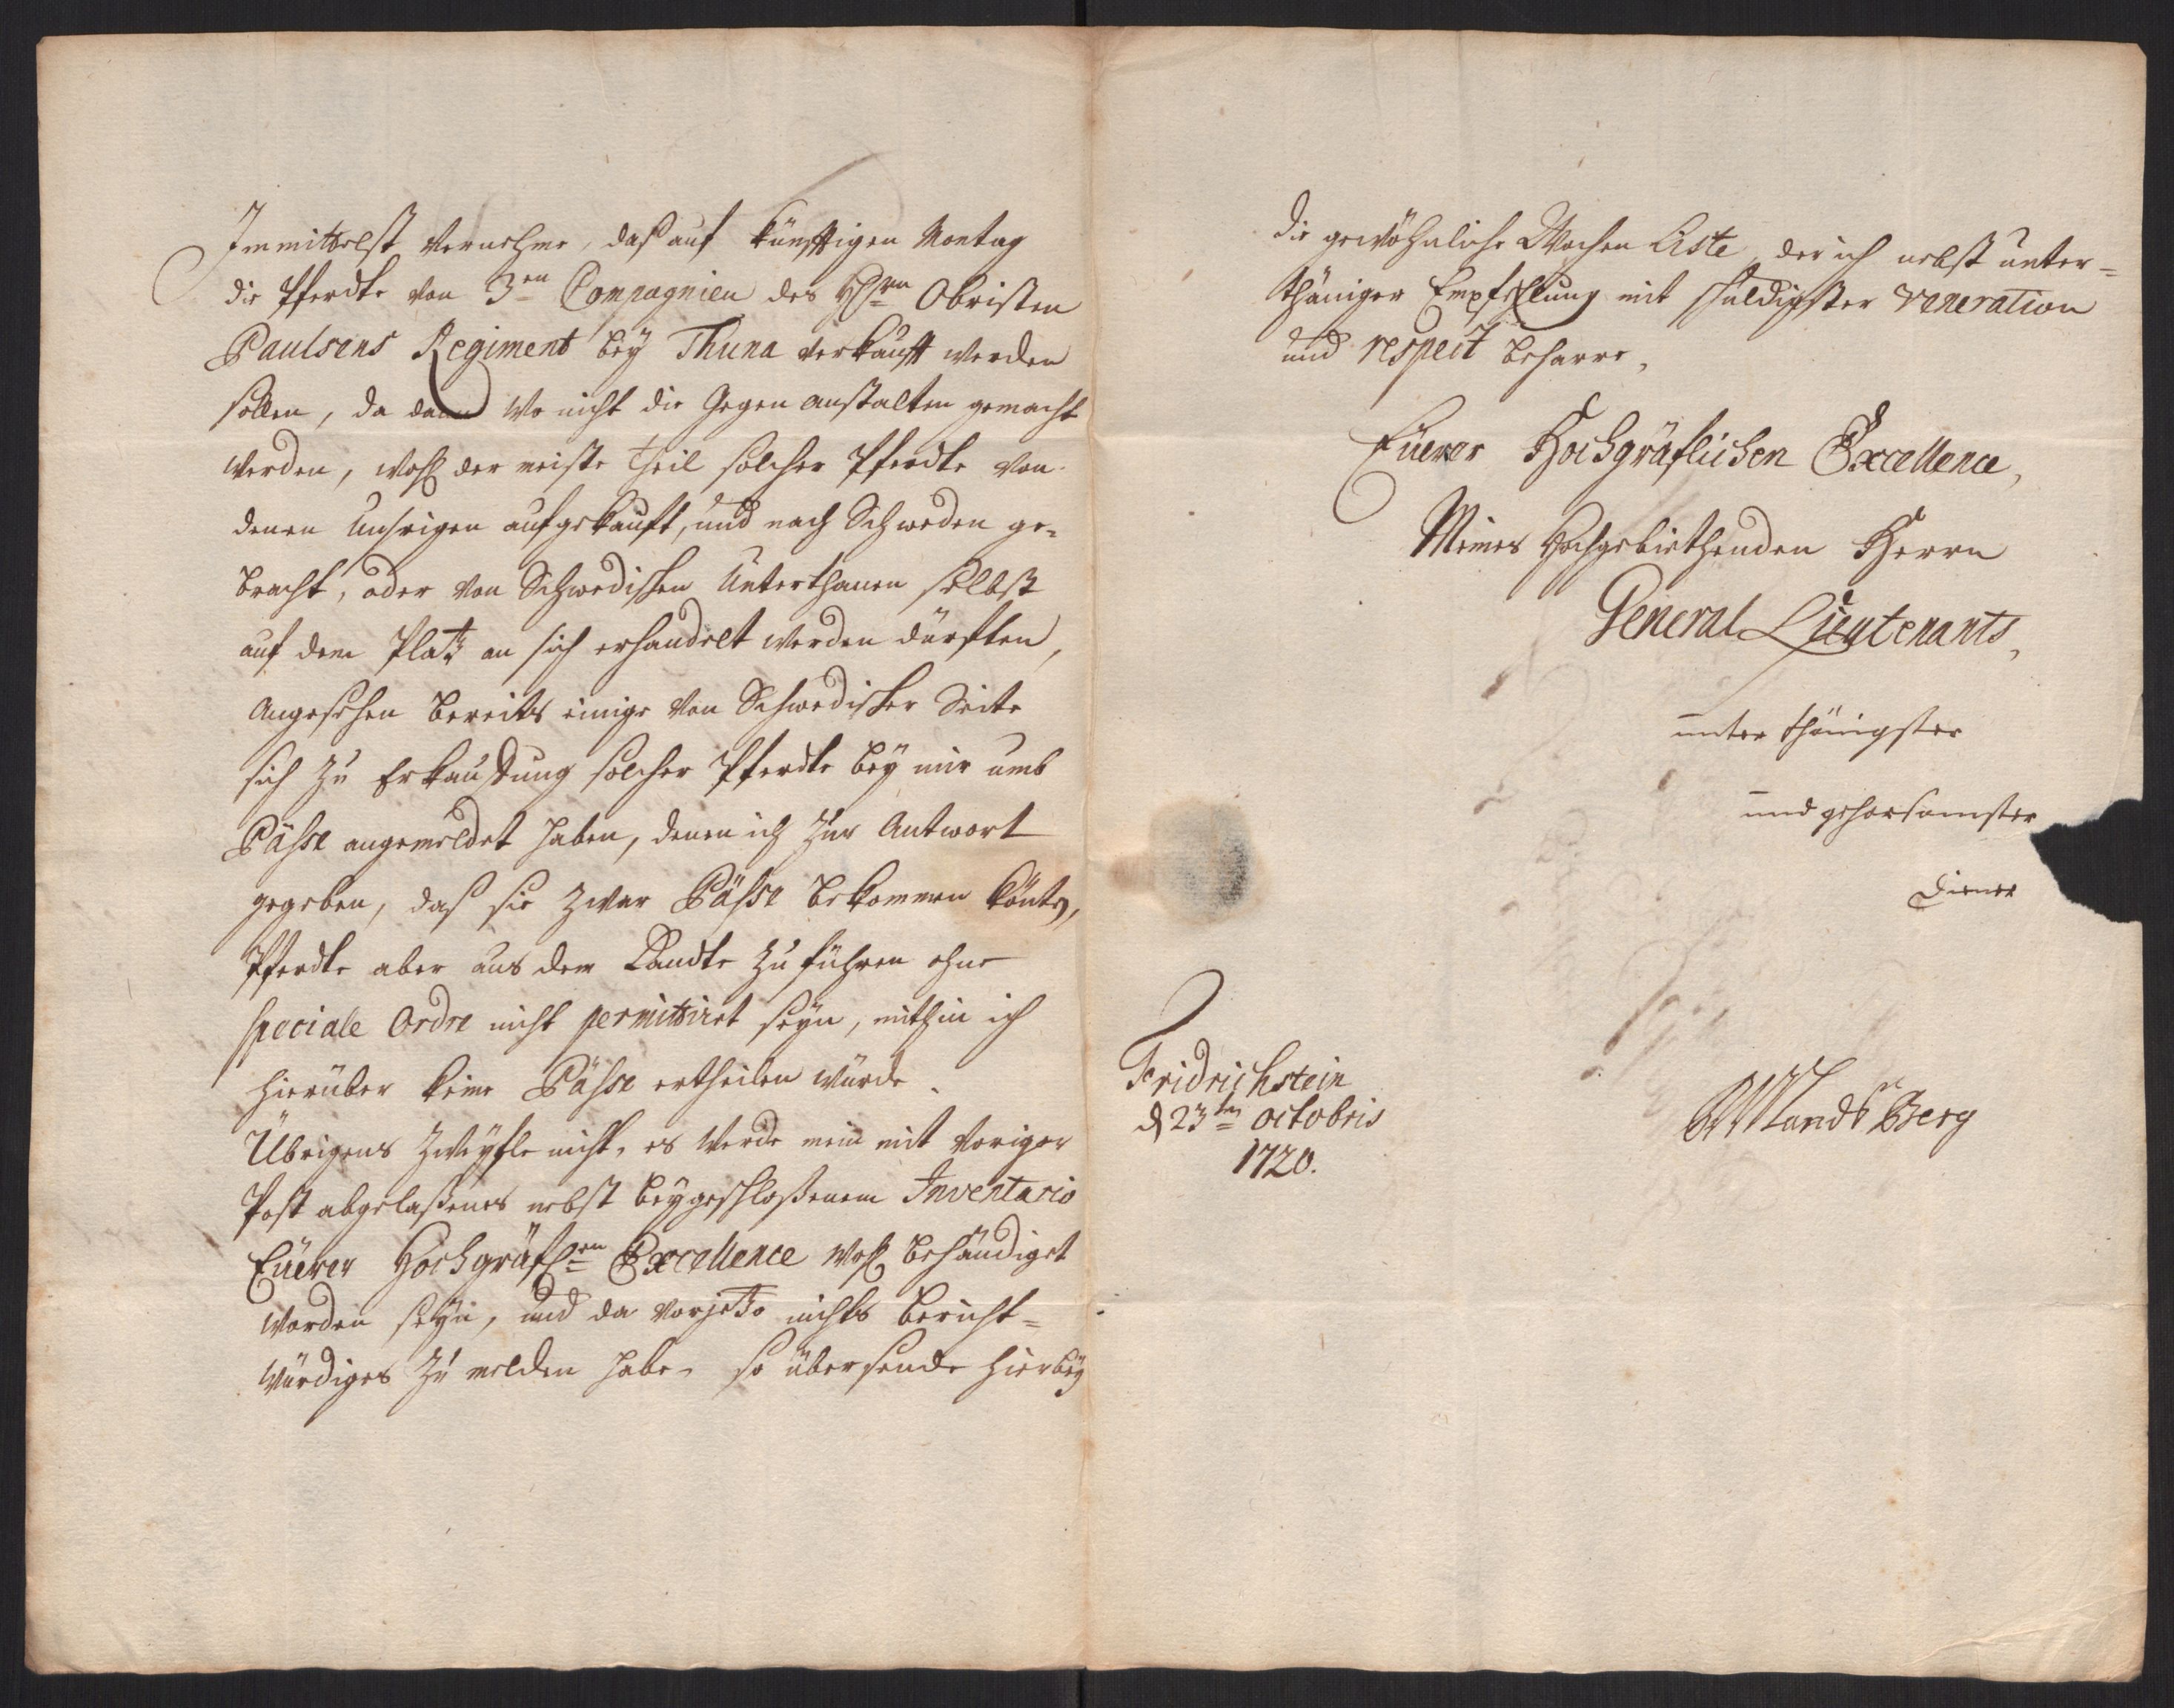 Immittelst vernehme, daß auf künfftigen Montag
die Pferdte von 3en Compagnien des HErrn Obristen
Paulsens Regiment bey Thuna verkaufft werden
sollen, da dann wo nicht die Gegen anstalten gemacht
werden, wohl der meiste theil solcher Pferdte von
denen Unsrigen aufgekauft, und nach Schweden ge-
bracht, oder von Schwedischen Unterthanen selbst
auf dem Platz an sich erhandelt werden dürfften,
Angesehen bereits einige von Schwedischer Seite
sich zu Erkauffung solcher Pferdte bey mir umb
Päße angemeldet haben, denen ich zur Antwort
gegeben, daß sie zwar Päße bekommen könten,
Pferdte aber aus dem Landte zu führen ohne
speciale Ordre nicht permittiret seyn, mithin ich
hierüber keine Päße ertheilen würde.
Übrigens zweyfle nicht, es werde mein mit voriger
Post abgelaßenes nebst beygeschloßenem Inventario
Eüerer Hochgräfl:en Excellence wohl behändiget
worden seyn, und da vorjetzo nichts bericht-
würdiges zu melden habe, so übersende hierbey
die gewöhnliche Wochen Liste, der ich nebst unter-
thäniger Empfehlung mit schuldigster veneration
und respect beharre,
Eüerer Hochgräflichen Excellence,
Meines Hochgebiethenden Herrn
General Lieutenants,
unterthänigster
und gehorsamster
Diener
Fridrichstein
d 23ten octobris
1720.
BWLandsBerg